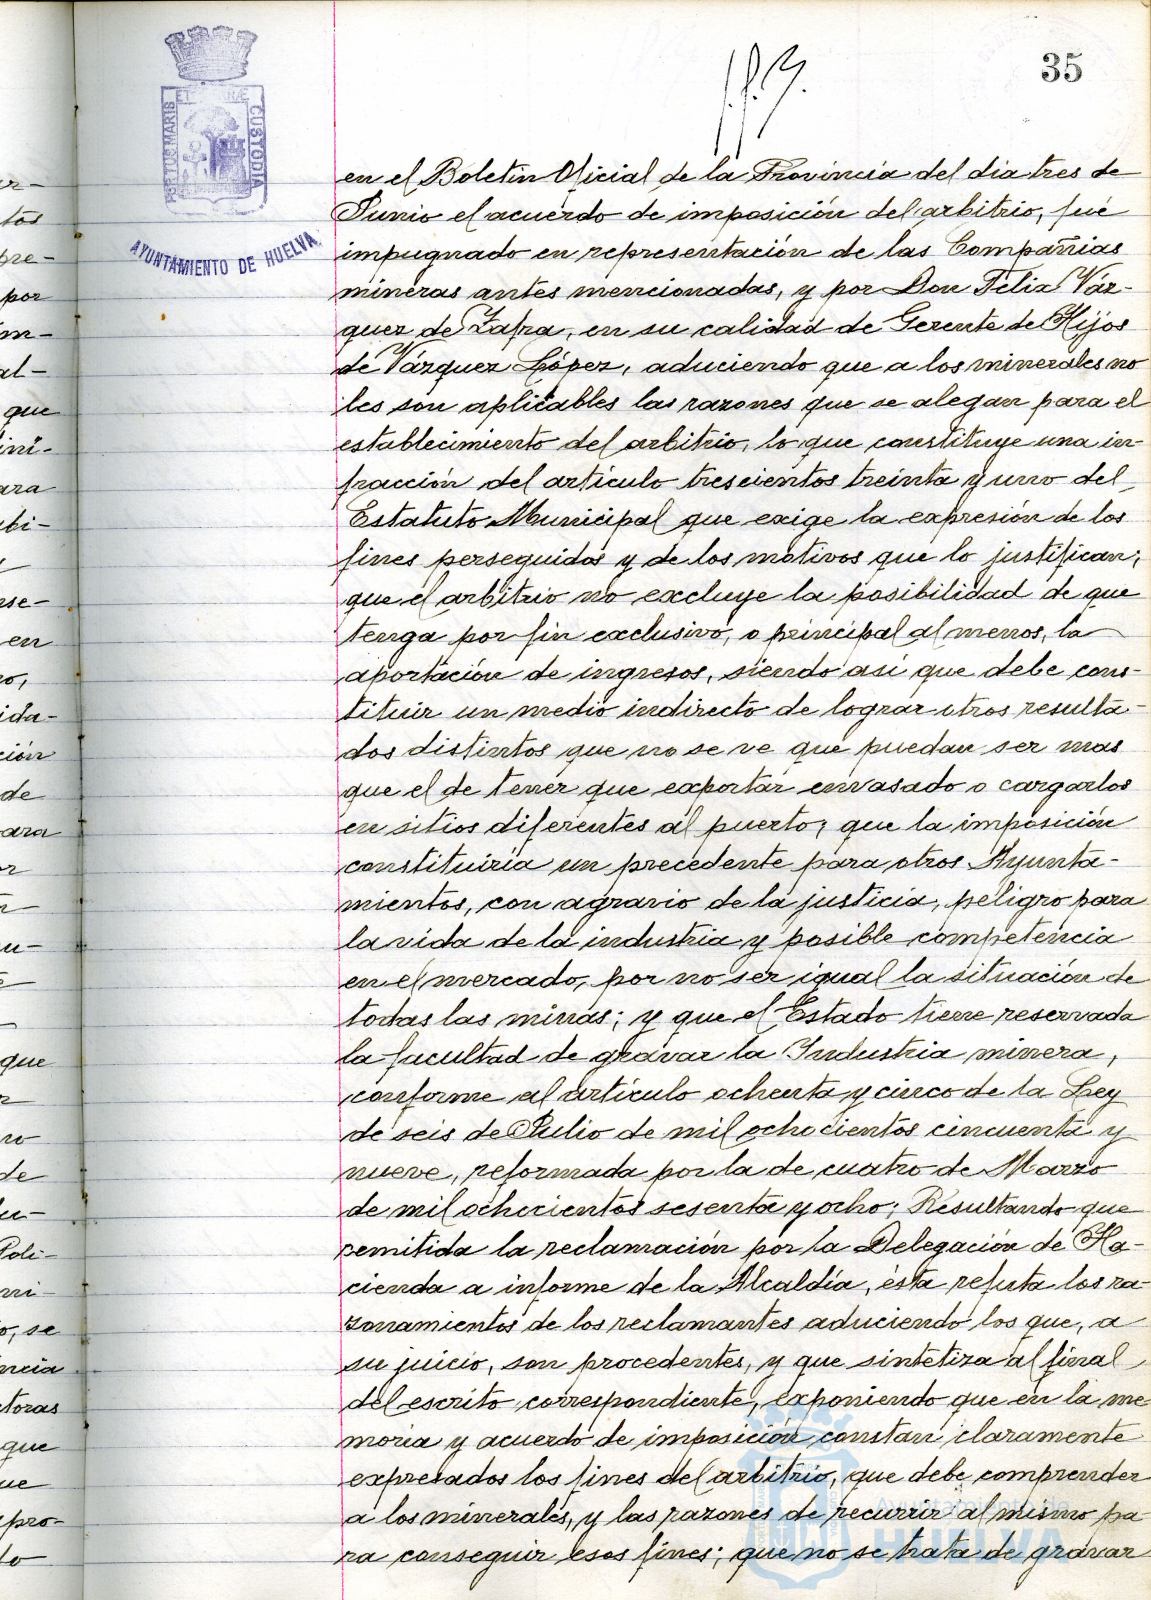 35
PORTUS MARIS ET CUSTODIA
AYUNTAMIENTO DE HUELVA
en el Boletin Oficial de la Provincia del dia tres de
Junio el acuerdo de imposición del arbitrio, fué
impugnado en representación de las Compañias
mineras antes mencionadas, y por Don Felix Váz-
quez de Zafra, en su calidad de Gerente de Hijos
de Vázquez López, aduciendo que a los minerales no
les son aplicables las razones que se alegan para el
establecimiento del arbitrio, lo que constituye una in-
fracción del artículo trescientos treinta y uno del
Estatuto Municipal que exige la expresión de los
fines perseguidos y de los motivos que lo justifican;
que el arbitrio no excluye la posibilidad de que
tenga por fin exclusivo, o principal al menos, la
aportación de ingresos, siendo así que debe cons-
tituir un medio indirecto de lograr otros resulta-
dos distintos que no se ve que puedan ser mas
que el de tener que exportar envasado o cargarlos
en sitios diferentes al puerto; que la imposición
constituiría un precedente para otros Ayunta-
mientos, con agravio de la justicia, peligro para
la vida de la industria y posible competencia
en el mercado, por no ser igual la situación de
todas las minas; y que el Estado tiene reservada
la facultad de gravar la Industria minera,
conforme al artículo ochenta y cinco de la Ley
de seis de Julio de mil ochocientos cincuenta y
nueve, reformada por la de cuatro de Marzo
de mil ochocientos sesenta y ocho; Resultando que
remitida la reclamación por la Delegación de Ha-
cienda a informe de la Alcaldía, ésta refuta los ra-
zonamientos de los reclamantes aduciendo los que, a
su juicio, son procedentes, y que sintetiza al final
del escrito correspondiente, exponiendo que en la me
moria y acuerdo de imposición constan claramente
expresados los fines del arbitrio, que debe comprender
a los minerales, y las razones de recurrir al mismo pa-
ra conseguir esos fines; que no se trata de gravar
Ayuntamiento de
HUELVA